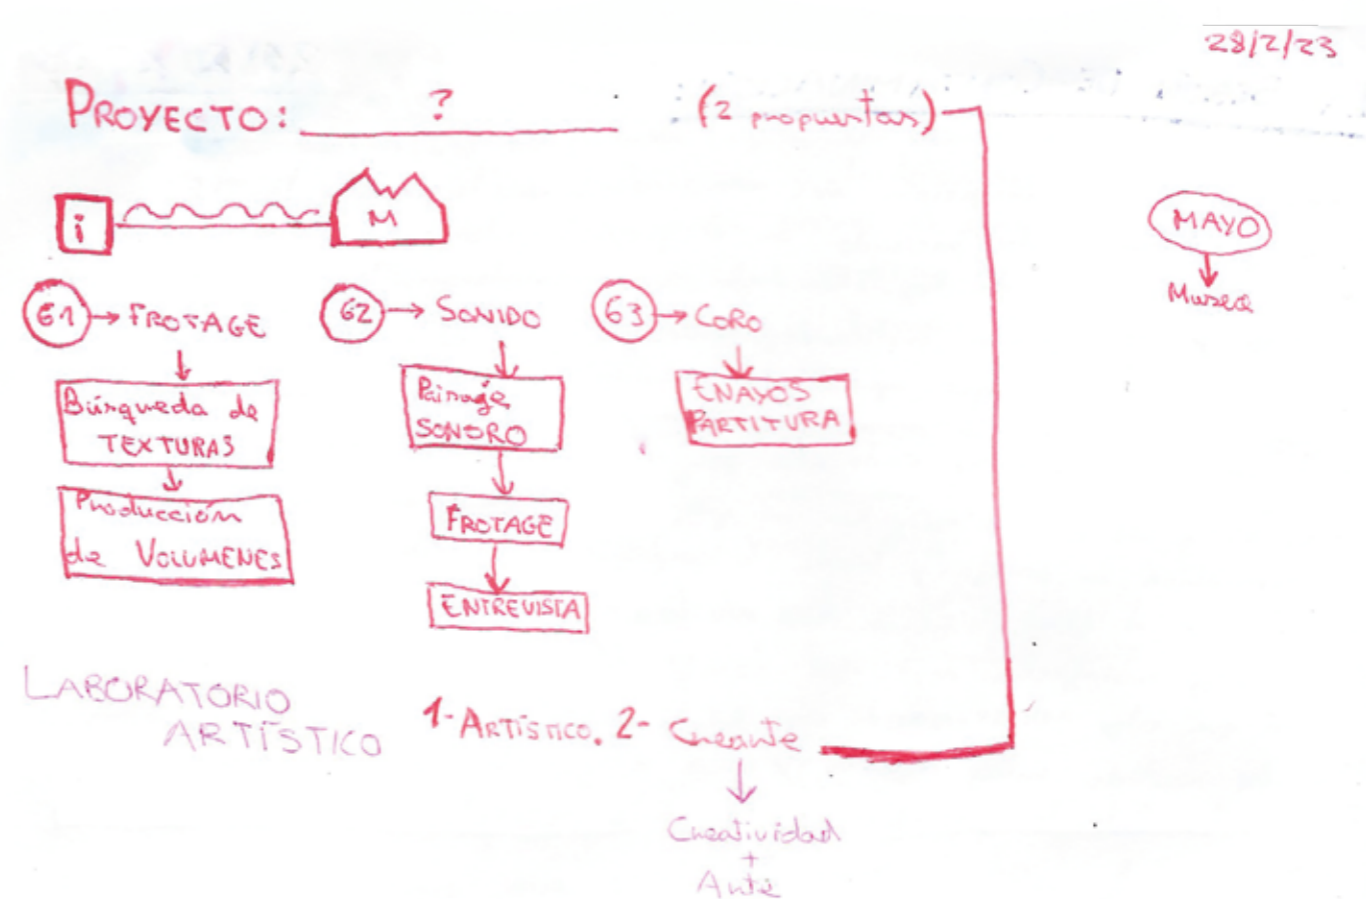 28/2/23
PROYECTO: ? (2 propuestas)
i
M
MAYO
Museo
G1 → FROTAGE
G2 → SONIDO
G3 → CORO
Búsqueda de
TEXTURAS
Producción
de VOLUMENES
Paisaje
SONORO
FROTAGE
ENTREVISTA
ENAYOS
PARTITURA
LABORATORIO
ARTÍSTICO
1- ARTÍSTICO. 2- Crearte
Creatividad
+
Arte